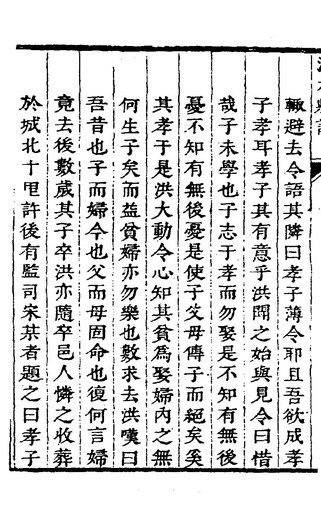 輙避去令語其隣曰孝子薄令耶且吾欲成孝
子孝耳孝子其有意乎洪聞之始與見令曰惜
哉子未學也子志于孝而勿娶是不知有無後
憂不知有無後憂是使子父母傳子而絕矣奚
其孝于是洪大動令心知其貧爲娶婦內之無
何生子矣而益貧婦亦勿樂也數求去洪嘆曰
吾昔也子而婦令也父而母固命也復何言婦
竟去後數歲其子卒洪亦隨卒邑人憐之收葬
於城北十里許後有監司宋某者題之曰孝子